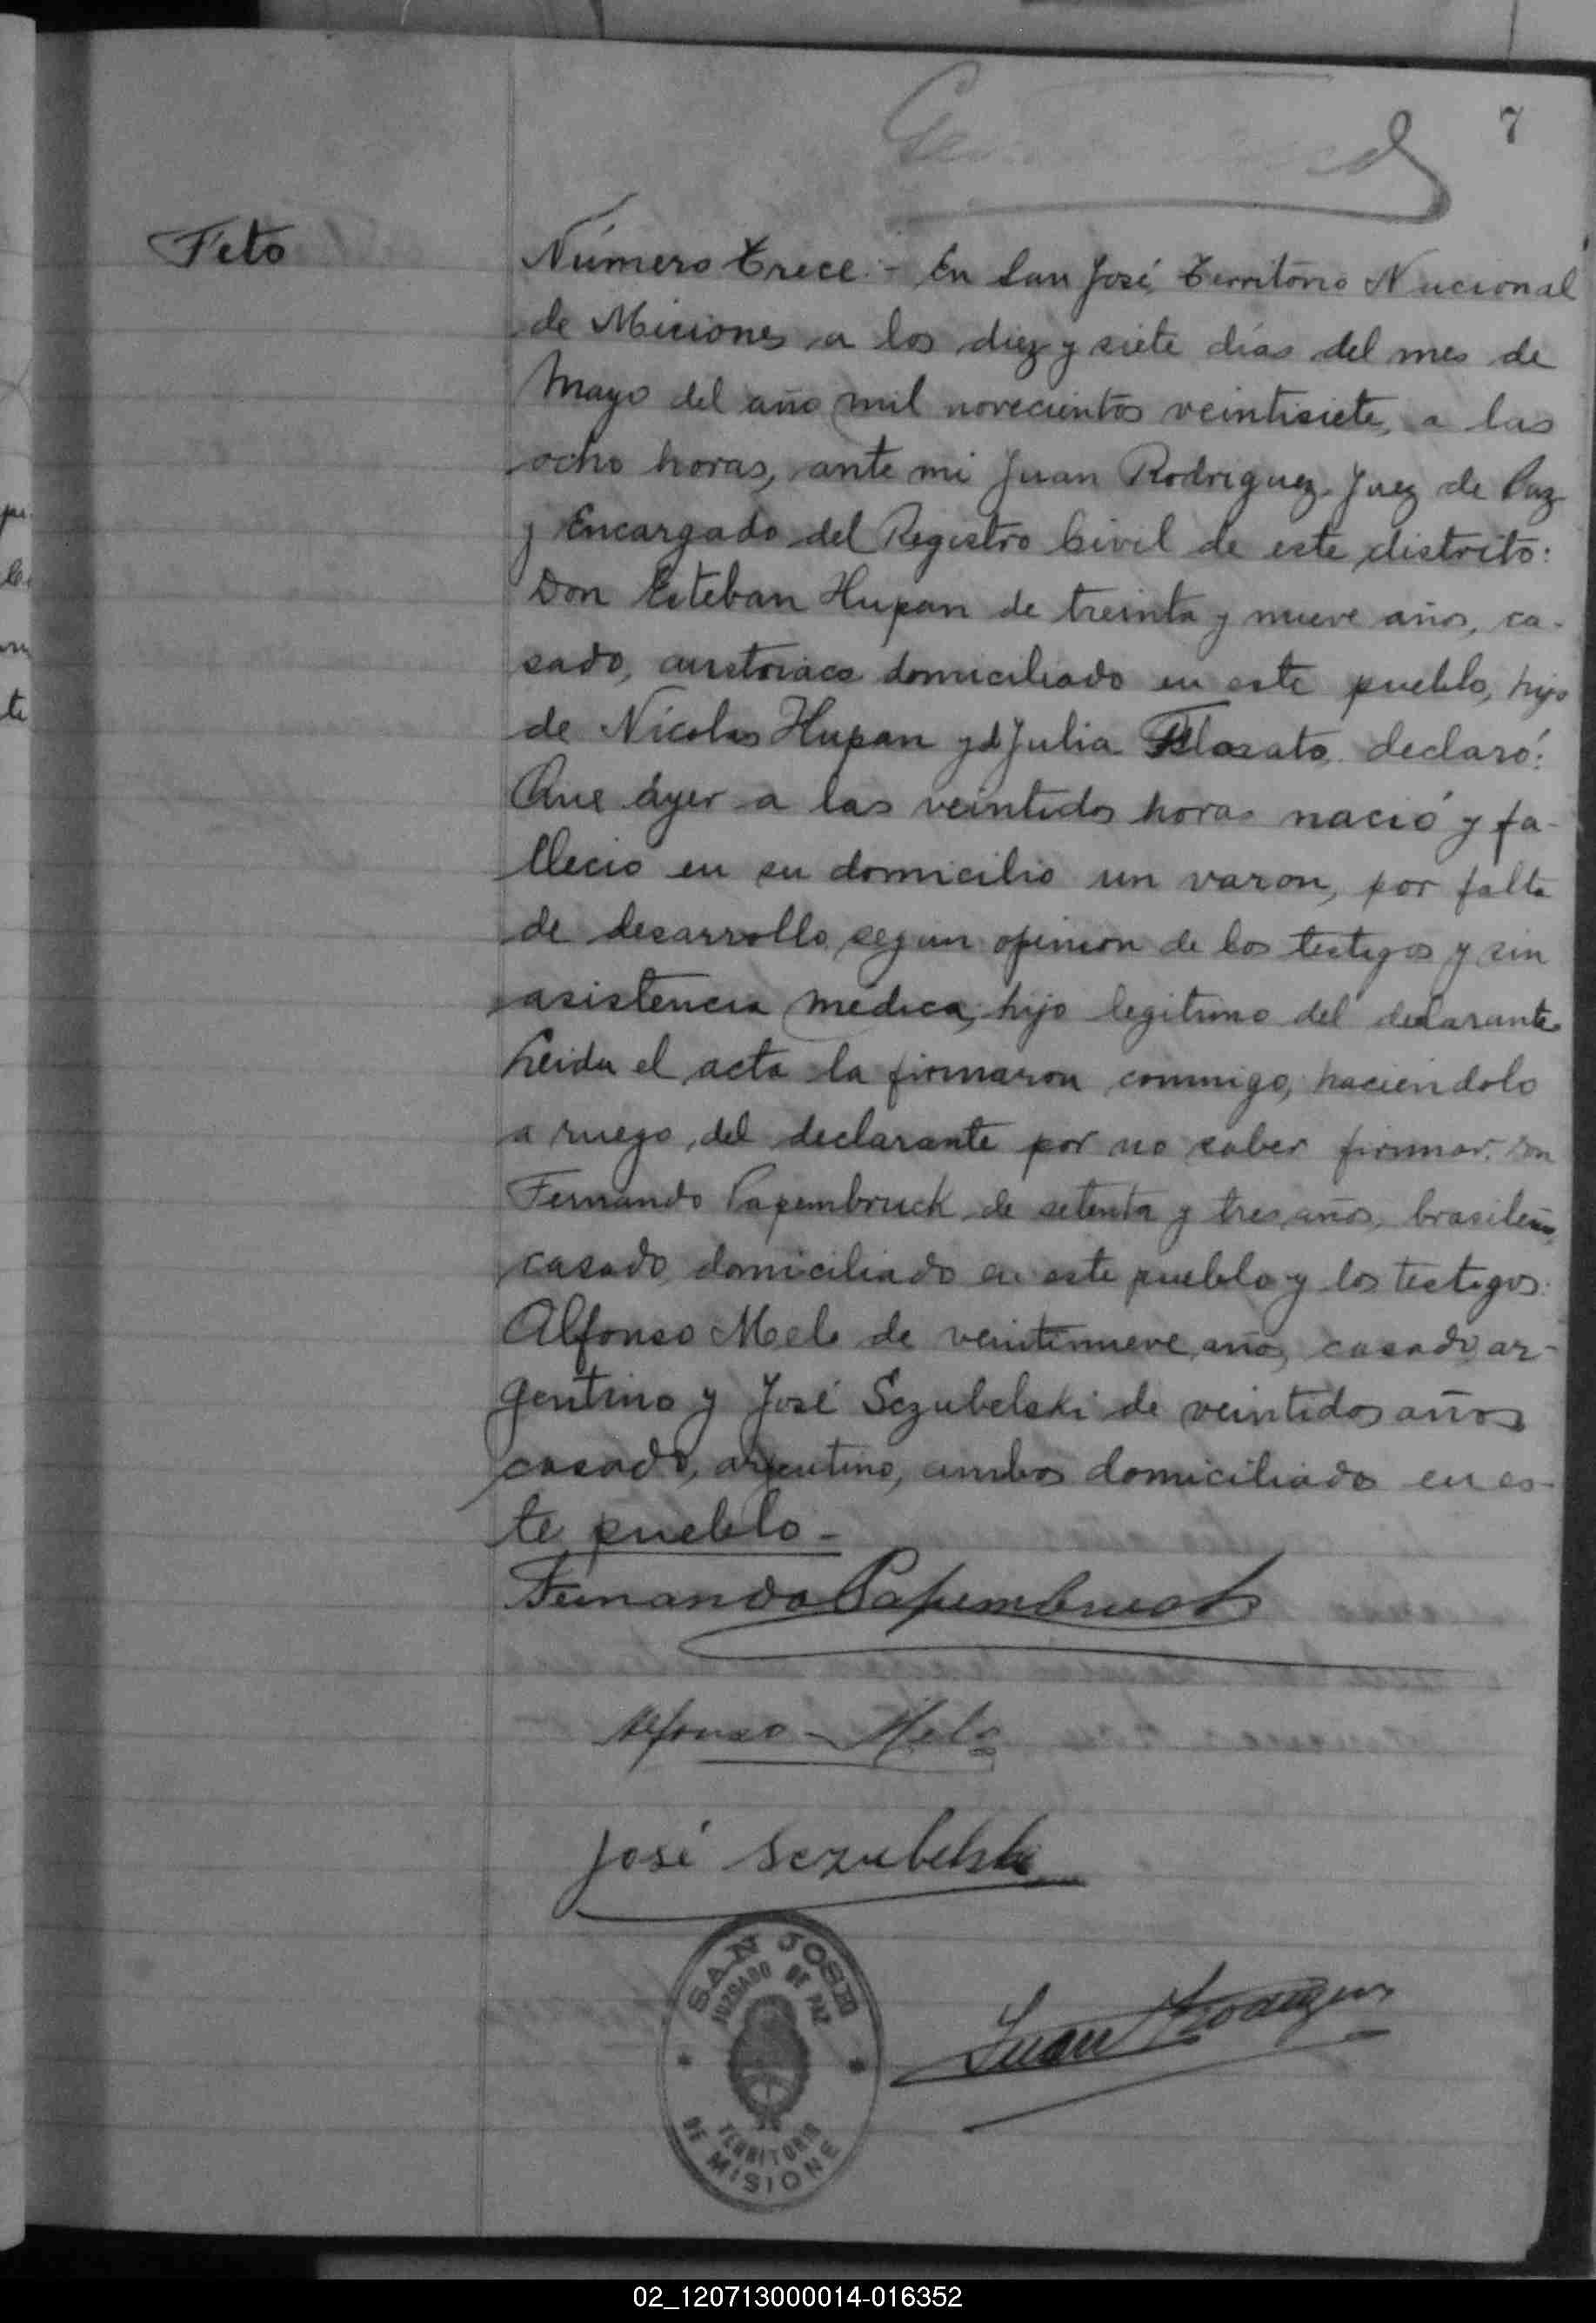 7
Feto
Número trece:- En San José, Territorio Nacional
de Misiones, a los diez y siete días del mes de
Mayo del año mil novecientos veintisiete, a las
ocho horas, ante mi Juan Rodriguez, Juez de Paz
y Encargado del Registro Civil de este distrito:
Don Esteban Hupan de treinta y nueve años, ca-
sado, austriaco domiciliado en este pueblo, hijo
de Nicolas Hupan y de Julia declaró:
Que áyer a las veintidos horas nació y fa-
llecio en su domicilio un varon, por falta
de desarrollo segun opinion de los testigos y sin
asistencia médica, hijo legitimo del declarante
Leida el acta la firmaron conmigo, haciendolo
a ruego del declarante por no saber firmar, don
Fernando Papembruck de setenta y tres años, brasileño,
casado, domiciliado en este pueblo y los testigos:
Alfonso Melo de veintinueve años, casado, ar-
gentino y José Sczubelski de veintidos años
casado, argentino, ambos domiciliados en es-
te pueblo -
Fernando Papembruck
Alfonso - Melo
José Sczubelski
SAN JOSE
JUZGADO DE PAZ
TERRITORIO
DE MISIONE
Juan Rodriguez
02_120713000014-016352